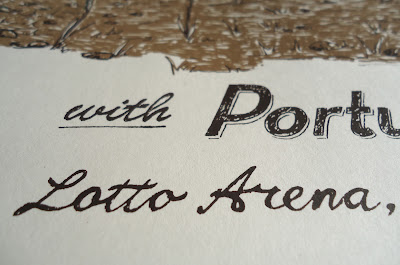 with Portu
Lotto Arena,